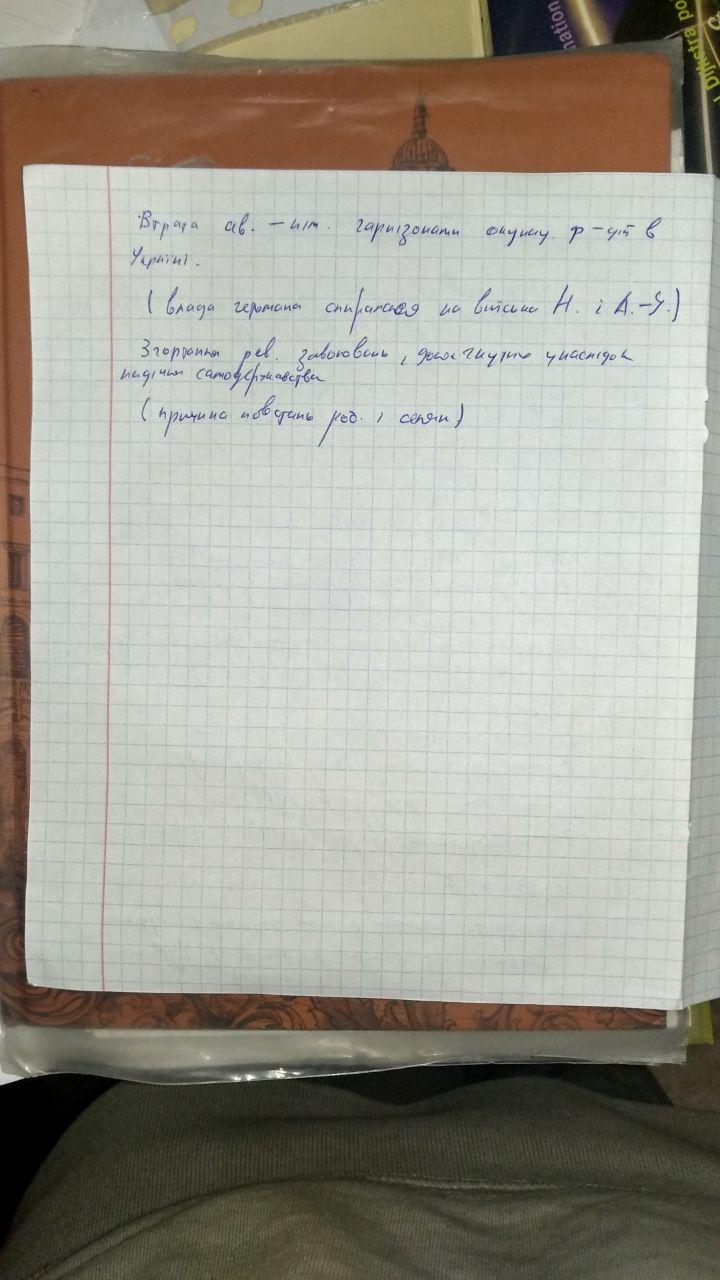 nation
Dijkstra po
Втрата ав. – нім. гарнізонами окупац. ф-цій в
Україні.
(влада гетьмана спиралася на війська Н. і А.-У.)
Згортання рев. завоювань, досягнутих унаслідок
падіння самодержавства
(причина повстань роб. і селян)